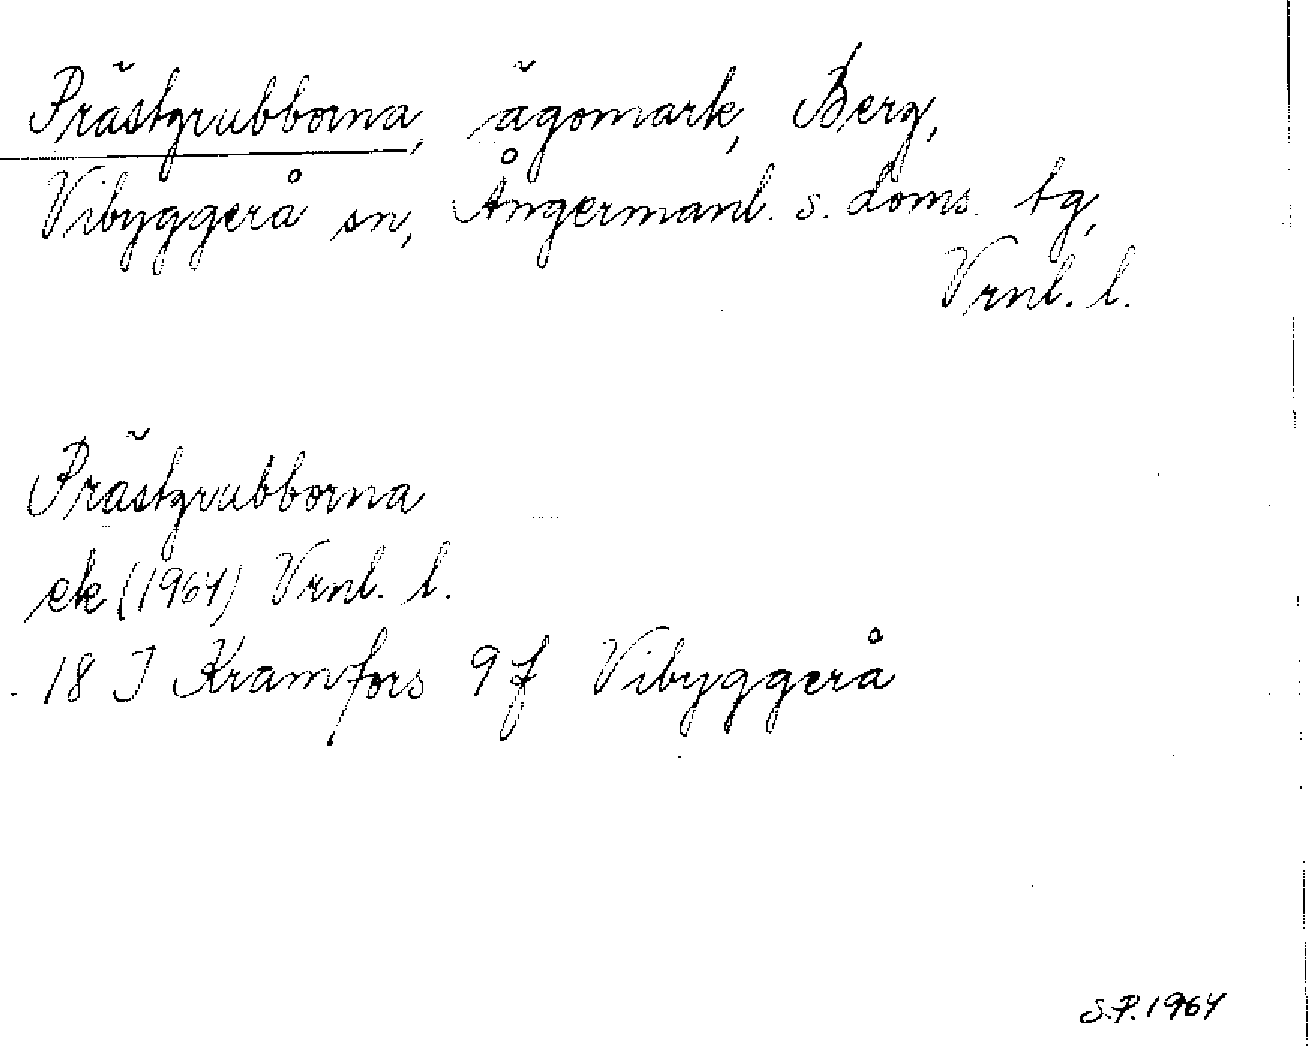 Prästgrubborna, ägomark, Berg,
Vibyggerå sn, Ångermanl. s. doms. tg,
Vrnl. l.
Prästgrubborna
ek (1964) Vrnl. l.
18 J Kramfors 9 f Vibyggerå
S.P. 1964